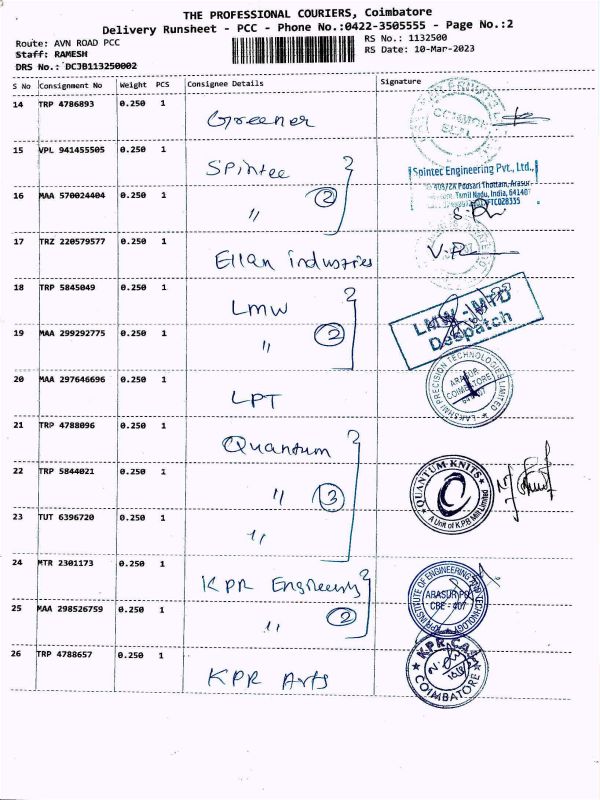 THE PROFESSIONAL COURIERS, Coimbatore
Delivery Runsheet - PCC - Phone No.:0422-3505555 - Page No.:2
Route: AVN ROAD PCC
RS No.: 1132500
Staff: RAMESH
RS Date: 10-Mar-2023
DRS No.: DCJB113250002
S No Consignment No Weight PCS Consignee Details Signature
14 TRP 4786893 0.250 1 Greener
15 VPL 941455505 0.250 1 Spintee
Spintec Engineering Pvt., Ltd.,
403/2A Poosari Thottam, Arasur-
Tamil Nadu, India, 641407
16 MAA 570024404 0.250 1 " 2
17 TRZ 220579577 0.250 1 Ellan industries
18 TRP 5845049 0.250 1 LMW
LMW-MTD
Despatch
19 MAA 299292775 0.250 1 " 2
20 MAA 297646696 0.250 1 LPT
LAKSHMI PRECISION TECHNOLOGIES LIMITED
ARASUR
COIMBATORE
21 TRP 4788096 0.250 1 Quantum
22 TRP 5844021 0.250 1 " 3
QUANTUM KNITS
A Unit of KPR Mill Limited
23 TUT 6396720 0.250 1 "
24 MTR 2301173 0.250 1 KPR Engineering
KPR INSTITUTE OF ENGINEERING AND TECHNOLOGY
ARASUR PO
CBE - 407
25 MAA 298526759 0.250 1 " 2
26 TRP 4788657 0.250 1 KPR Arts
COIMBATORE